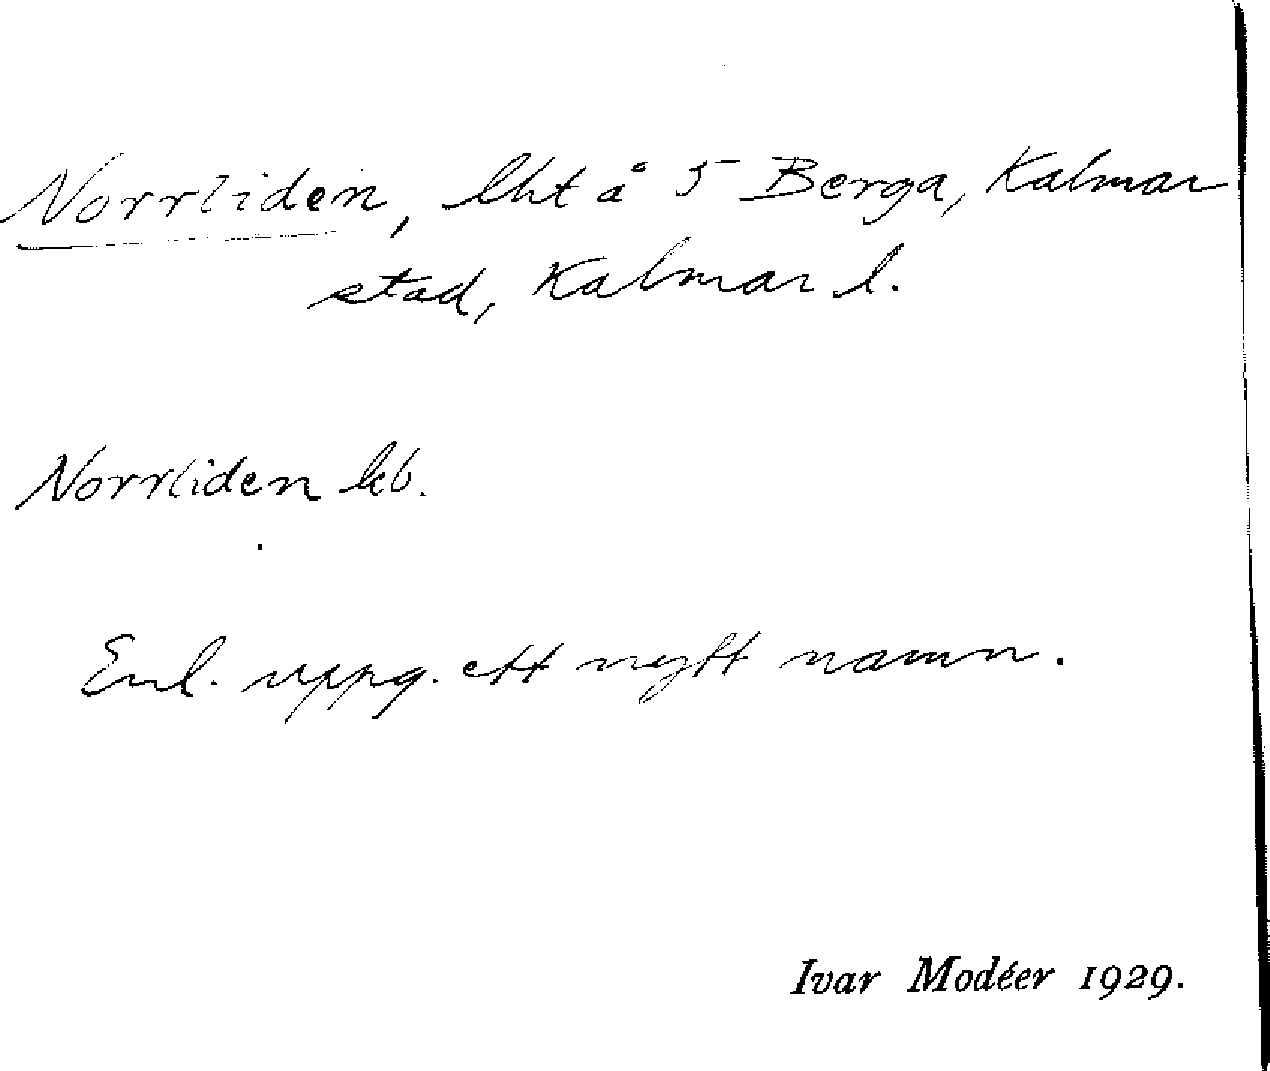 Norrliden, lht å 5 Berga, Kalmar
stad, Kalmar l.
Norrliden kb.
Enl. uppg. ett nytt namn.
Ivar Modéer 1929.